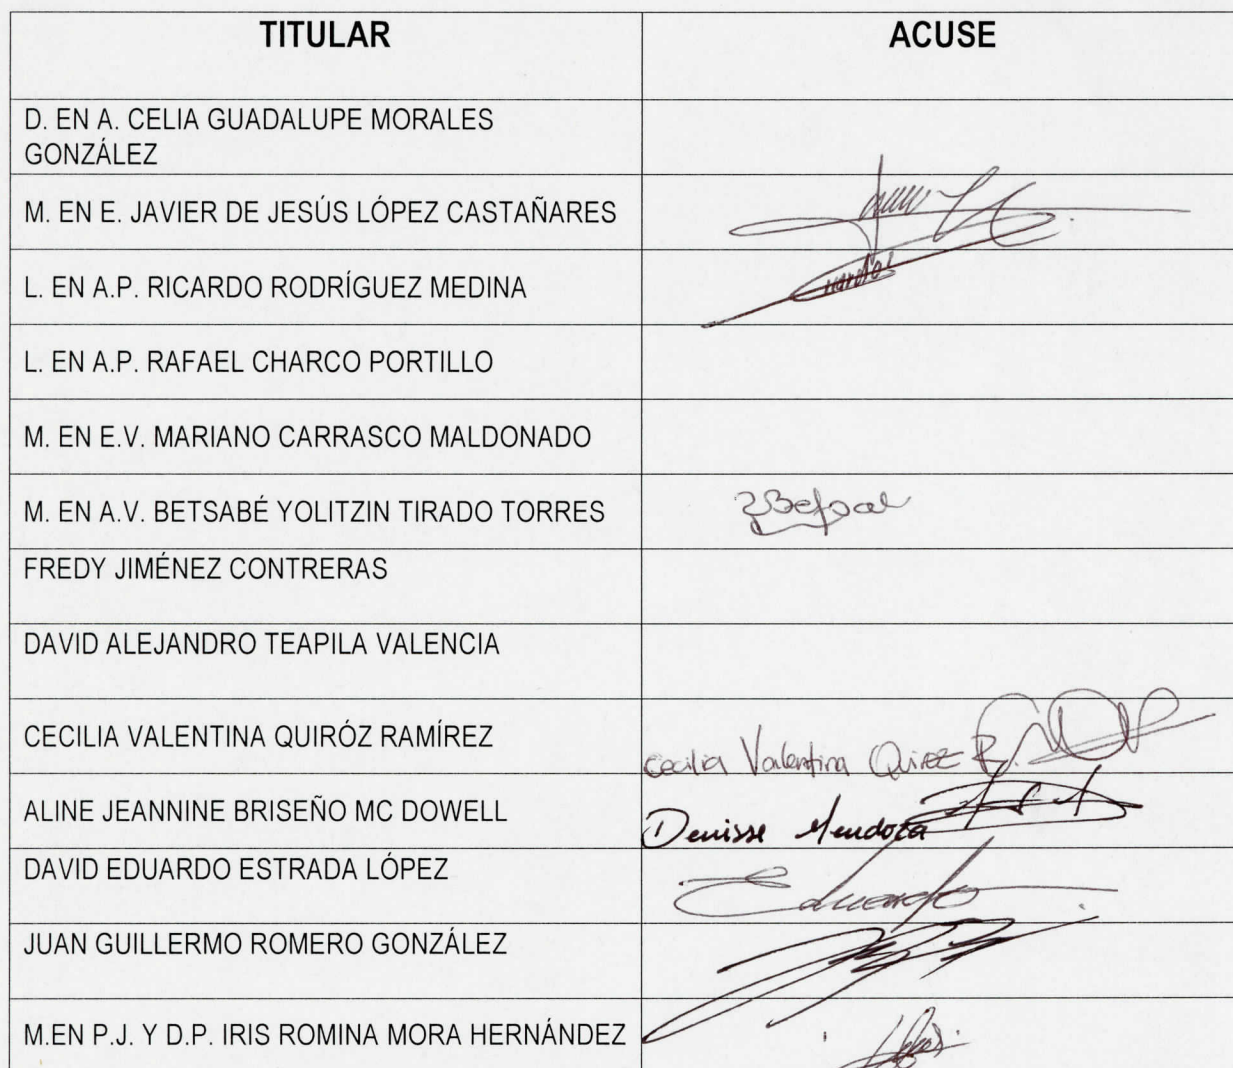 TITULAR ACUSE
D. EN A. CELIA GUADALUPE MORALES
GONZÁLEZ
M. EN E. JAVIER DE JESÚS LÓPEZ CASTAÑARES
L. EN A.P. RICARDO RODRÍGUEZ MEDINA
L. EN A.P. RAFAEL CHARCO PORTILLO
M. EN E.V. MARIANO CARRASCO MALDONADO
M. EN A.V. BETSABÉ YOLITZIN TIRADO TORRES
FREDY JIMÉNEZ CONTRERAS
DAVID ALEJANDRO TEAPILA VALENCIA
CECILIA VALENTINA QUIRÓZ RAMÍREZ Cecilia Valentina Quiroz R.
ALINE JEANNINE BRISEÑO MC DOWELL Denisse Mendoza
DAVID EDUARDO ESTRADA LÓPEZ
JUAN GUILLERMO ROMERO GONZÁLEZ
M.EN P.J. Y D.P. IRIS ROMINA MORA HERNÁNDEZ